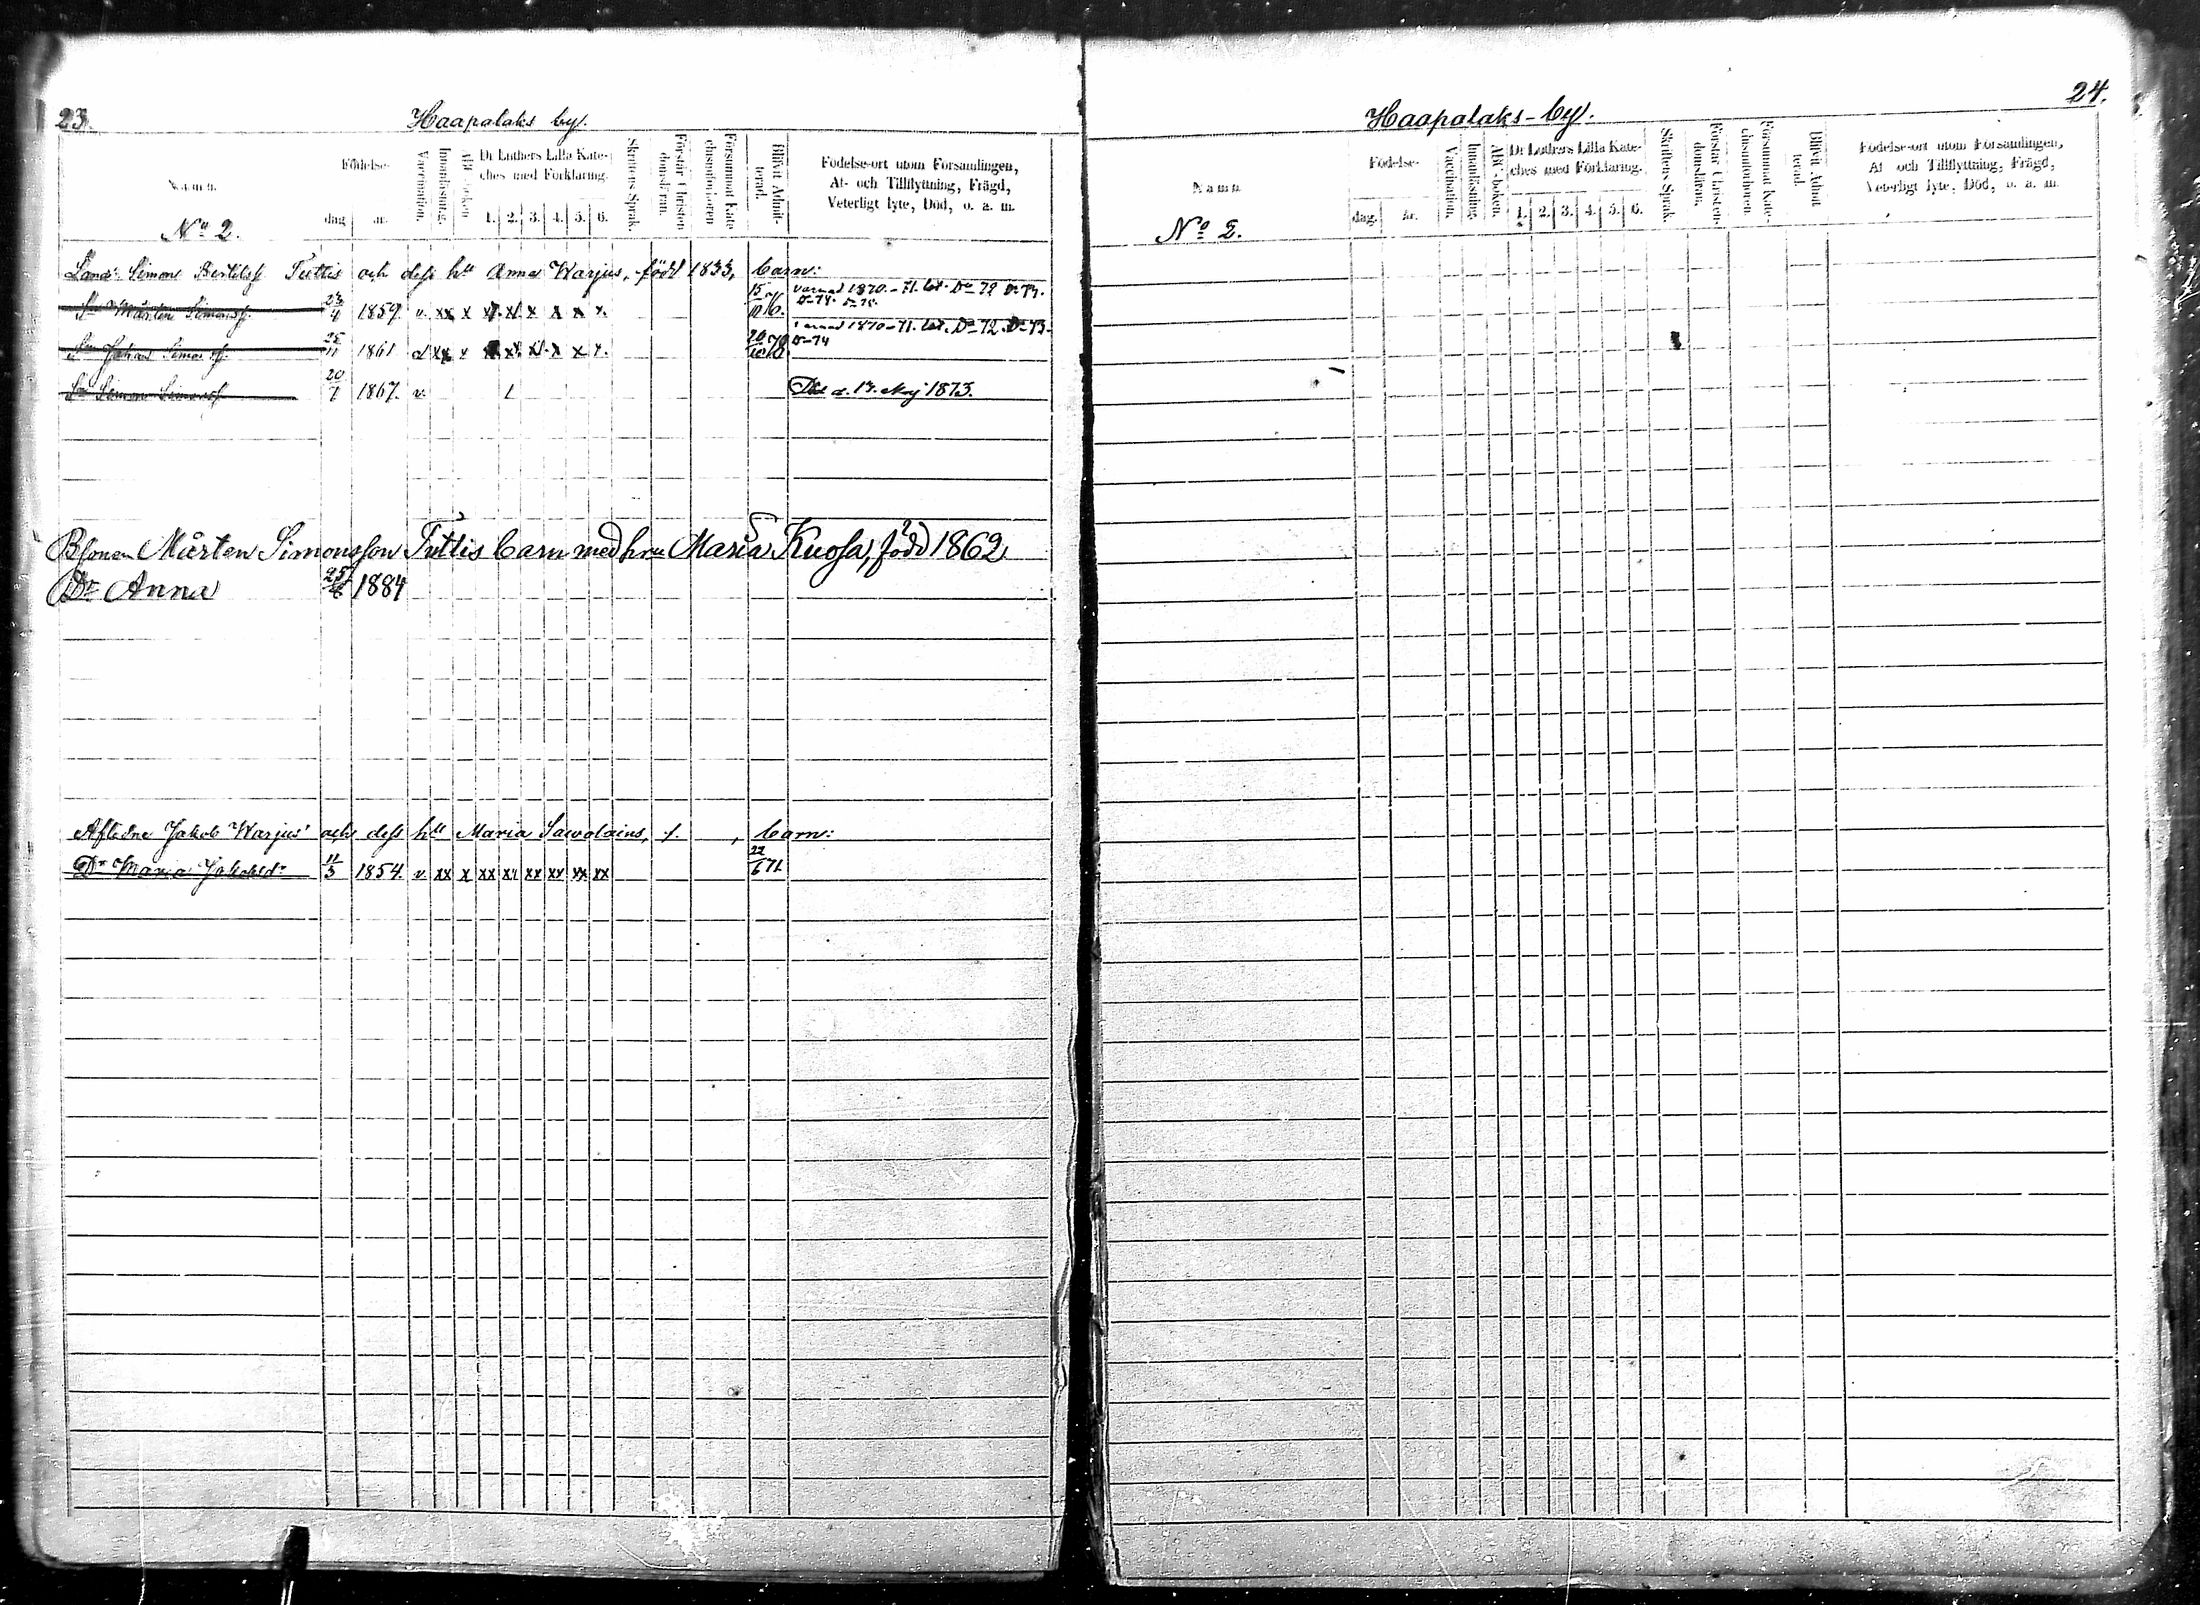 23.
Haapalaks by.
Namn.
Födelse-
dag
år.
Vaccination.
Innanläsning.
ABC-boken
Dr Luthers Lilla Kate-
ches med Förklaring.
1. 2. 3. 4. 5. 6.
Skriftens Språk.
Förstår Christen-
domsläran.
Försummat Kate-
chismiförhören
Blifvit Admit-
terad.
Födelse-ort utom Församlingen,
Af- och Tillflyttning, Frägd,
Veterligt lyte, Död, o. a. m.
No 2.
Simon Bertilss Tuttis och dess hu Anna Warjus, född 1833, barn:
Sn Mårten Simonss 23/4 1859 v. xx x x x x x x x. 15/10 76. varnad 1870.-71. Do 72 Do 73.
Do 74. Do 75.
Sn Johan Simonss 25/11 1861 xx x x x x x x. varnad 1870-71. Do 72. Do 73.
Do 74
Sn Simon Simonss 20/7 1867. v. 1 Död d. 13. Maj 1873.
Bsonen Mårten Simonsson Tuttis barn med hru Maria Kuosa, född 1862
Dr Anna 25/ 1884
Afledne Jakob Warjus' och dess hu Maria Sawolains, f. , barn:
Dr Maria Jakobsdr 11/3 1854. v xx x xx xx xx xx xx xx 22/6 71.
24.
Haapalaks-by.
Namn
Födelse-
dag.
år.
Vaccination.
Innanläsning.
ABC-boken.
Dr Luthers Lilla Kate-
ches med Förklaring.
1. 2. 3. 4. 5. 6.
Skriftens Språk.
Förstår Christen-
domsläran.
Försummat Kate-
chismiförhören.
Blifvit Admit-
terad.
Födelse-ort utom Församlingen,
Af- och Tillflyttning, Frägd,
Veterligt lyte, Död, o. a. m.
No 2.